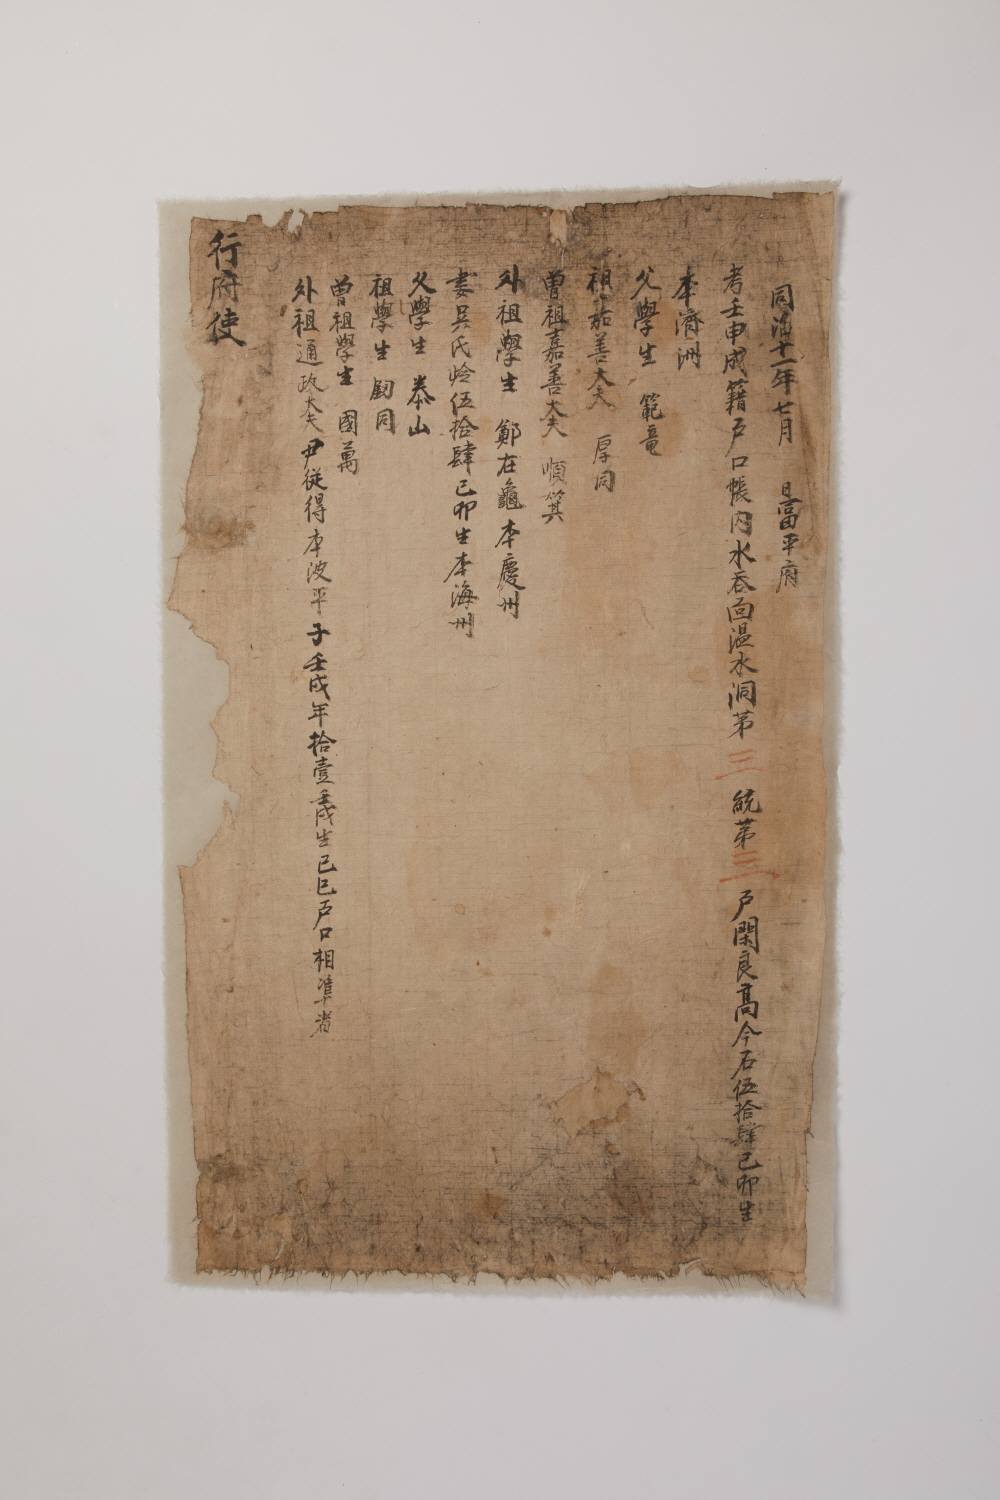 同治十一年七月 日富平府
考壬申成籍戶口帳內水呑面溫水洞第三統第三戶閑良高今石伍拾肆己卯生
本濟洲
父學生 範竜
祖嘉善大夫 厚同
曾祖嘉善大夫 順箕
外祖學生 鄭在龜本慶州
妻吳氏齡伍拾肆己卯生本海州
父學生 泰山
祖學生 釰同
曾祖學生 國萬
外祖通政大夫尹從得本波平子壬戌年拾壹壬戌生己巳戶口相準者
行府使